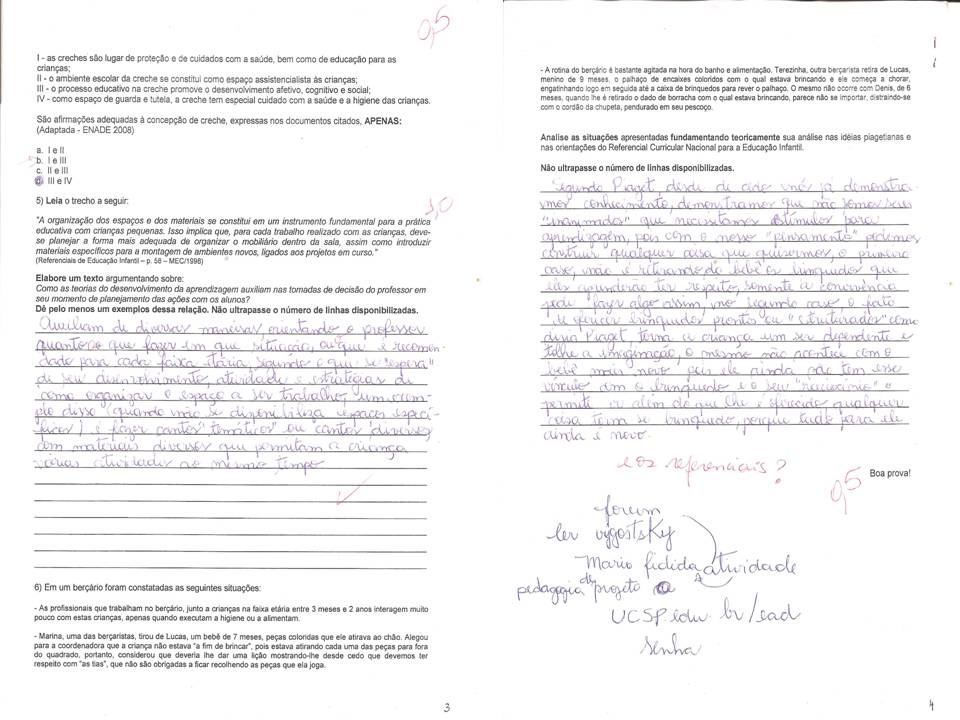 0,5
I - as creches são lugar de proteção e de cuidados com a saúde, bem como de educação para as
crianças;
II - o ambiente escolar da creche se constitui como espaço assistencialista às crianças;
III - o processo educativo na creche promove o desenvolvimento afetivo, cognitivo e social;
IV - como espaço de guarda e tutela, a creche tem especial cuidado com a saúde e a higiene das crianças.
São afirmações adequadas à concepção de creche, expressas nos documentos citados, APENAS:
(Adaptada - ENADE 2008)
a. I e II
b. I e III
c. II e III
d. III e IV
5) Leia o trecho a seguir:
1,0
"A organização dos espaços e dos materiais se constitui em um instrumento fundamental para a prática
educativa com crianças pequenas. Isso implica que, para cada trabalho realizado com as crianças, deve-
se planejar a forma mais adequada de organizar o mobiliário dentro da sala, assim como introduzir
materiais específicos para a montagem de ambientes novos, ligados aos projetos em curso."
(Referenciais de Educação Infantil – p. 58 – MEC/1998)
Elabore um texto argumentando sobre:
Como as teorias do desenvolvimento da aprendizagem auxiliam nas tomadas de decisão do professor em
seu momento de planejamento das ações com os alunos?
Dê pelo menos um exemplos dessa relação. Não ultrapasse o número de linhas disponibilizadas.
Auxiliam de diversas maneiras orientando o professor
quanto o que fazer em que situação, o que é recomen
dado para cada faixa etária, segundo o que se "espera"
de seu desenvolvimento, atividade e estratégias de
como organizar o espaço a ser trabalho, um exem
plo disso (quando não se disponibiliza espaços especí
ficos) é fazer cantos "temáticos" ou cantos diversos
com materiais diversos que permitam a criança
várias atividades ao mesmo tempo
6) Em um berçário foram constatadas as seguintes situações:
- As profissionais que trabalham no berçário, junto a crianças na faixa etária entre 3 meses e 2 anos interagem muito
pouco com estas crianças, apenas quando executam a higiene ou a alimentam.
- Marina, uma das berçaristas, tirou de Lucas, um bebê de 7 meses, peças coloridas que ele atirava ao chão. Alegou
para a coordenadora que a criança não estava "a fim de brincar", pois estava atirando cada uma das peças para fora
do quadrado, portanto, considerou que deveria lhe dar uma lição mostrando-lhe desde cedo que devemos ter
respeito com "as tias", que não são obrigadas a ficar recolhendo as peças que ela joga.
3
- A rotina do berçário é bastante agitada na hora do banho e alimentação. Terezinha, outra berçarista retira de Lucas,
menino de 9 meses, o palhaço de encaixes coloridos com o qual estava brincando e ele começa a chorar,
engatinhando logo em seguida até a caixa de brinquedos para rever o palhaço. O mesmo não ocorre com Denis, de 6
meses, quando lhe é retirado o dado de borracha com o qual estava brincando, parece não se importar, distraindo-se
com o cordão da chupeta, pendurado em seu pescoço.
Analise as situações apresentadas fundamentando teoricamente sua análise nas idéias piagetianas e
nas orientações do Referencial Curricular Nacional para a Educação Infantil.
Não ultrapasse o número de linhas disponibilizadas.
Segundo Piaget, desde de cedo nós já demonstra
mos conhecimento, demonstramos que não somos seres
"inanimados" que necessitamos estímulos para
aprendizagem, pois com o nosso "pensamento" podemos
construir qualquer coisa que quisermos, o primeiro
caso, não é retirando do bebê os brinquedos que
eles aprenderão ter respeito, somente a convivência
pode fazer algo assim, no segundo caso, o fato
de oferecer brinquedos prontos ou "estruturados" como
dizia Piaget, torna a criança um ser dependente e
tolhe a imaginação, o mesmo não acontece com o
bebê mais novo, pois ele ainda não tem esse
vínculo com o brinquedo e o seu "raciocínio" o
permite ir além do que lhe é oferecido qualquer
coisa tem se brinquedo, porque tudo para ele
ainda é novo.
e os referenciais?
0,5
Boa prova!
forum
ler vygostsky
Mario fidida atividade
pedagogia de projeto
UCSP.edu.br/ead
senha
4